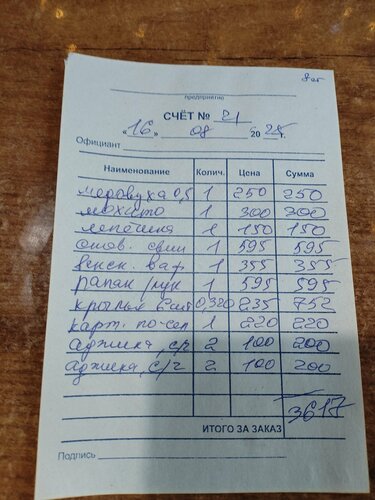 предприятие
СЧЁТ № 21
"16" 08 2025г.
Официант
Наименование Колич. Цена Сумма
медовуха 0,5 1 250 250
мохито 1 300 300
лепёшка 1 150 150
отов. свин 1 595 595
венск. ваф 1 355 355
рапан / лук 1 595 595
крылья 0,320 235 752
карт. по-сел 1 220 220
аджика, с/г 2 100 200
аджика, с/г 2 100 200
3617
ИТОГО ЗА ЗАКАЗ
Подпись